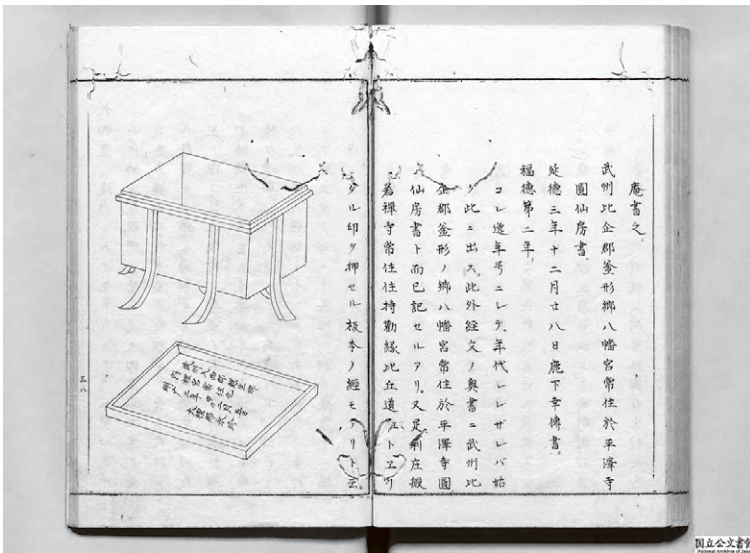 庵書之。
武州比企郡釜形郷八幡宮常住於平澤寺
圓仙房書。
延徳三年十二月廿八日庵下幸傳書。
福徳第二年。
コレ逸年号ニレテ、年代レレザレバ姑
ク此ニ出ス。此外経文ノ奥書ニ武州比
企郡釜形ノ郷八幡宮常住於平澤寺圓
仙房書ト而已記セルアリ。又足利庄搬
若禅寺常住住持勧縁比丘道 トヱリ
タル印ヲ押セル板本ノ經モアリト云
武州入西郡
三八
国立公文書館
National Archives of Japan